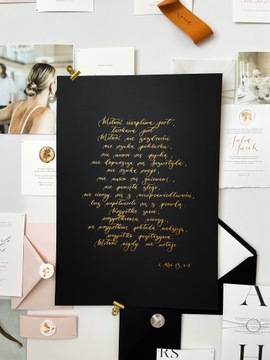 Miłość cierpliwa jest,
łaskawa jest.
Miłość nie zazdrości
nie szuka poklasku,
nie unosi się pychą,
nie dopuszcza się bezwstydu,
nie szuka swego,
nie unosi się gniewem,
nie pamięta złego,
nie cieszy się z niesprawiedliwości,
lecz współweseli się z prawdą.
Wszystko znosi,
wszystkiemu wierzy,
we wszystkim pokłada nadzieję,
wszystko przetrzyma.
Miłość nigdy nie ustaje.
Julia
Jacek
A
RS